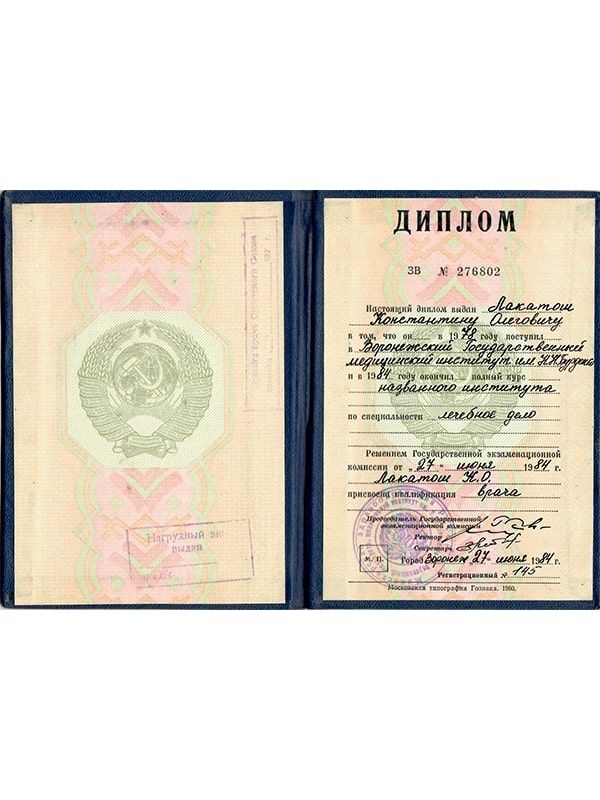 Нагрудный зн
выдан
ДИПЛОМ
ЗВ № 276802
Настоящий диплом выдан Лакатош
Константину Олеговичу
в том, что он в 1978 году поступил
в Воронежский Государственный
медицинский институт им. Н.Н.Бурденко
и в 1984 году окончил полный курс
названного института
по специальности лечебное дело
Решением Государственной экзаменационной
комиссии от „27" июня 1984 г.
Лакатош К.О.
присвоена квалификация врача
Председатель Государственной
экзаменационной комиссии
Ректор
Секретарь
М. П. Город Воронеж 27 июня 1984 г.
Регистрационный № 145
Московская типография Гознака. 1980.